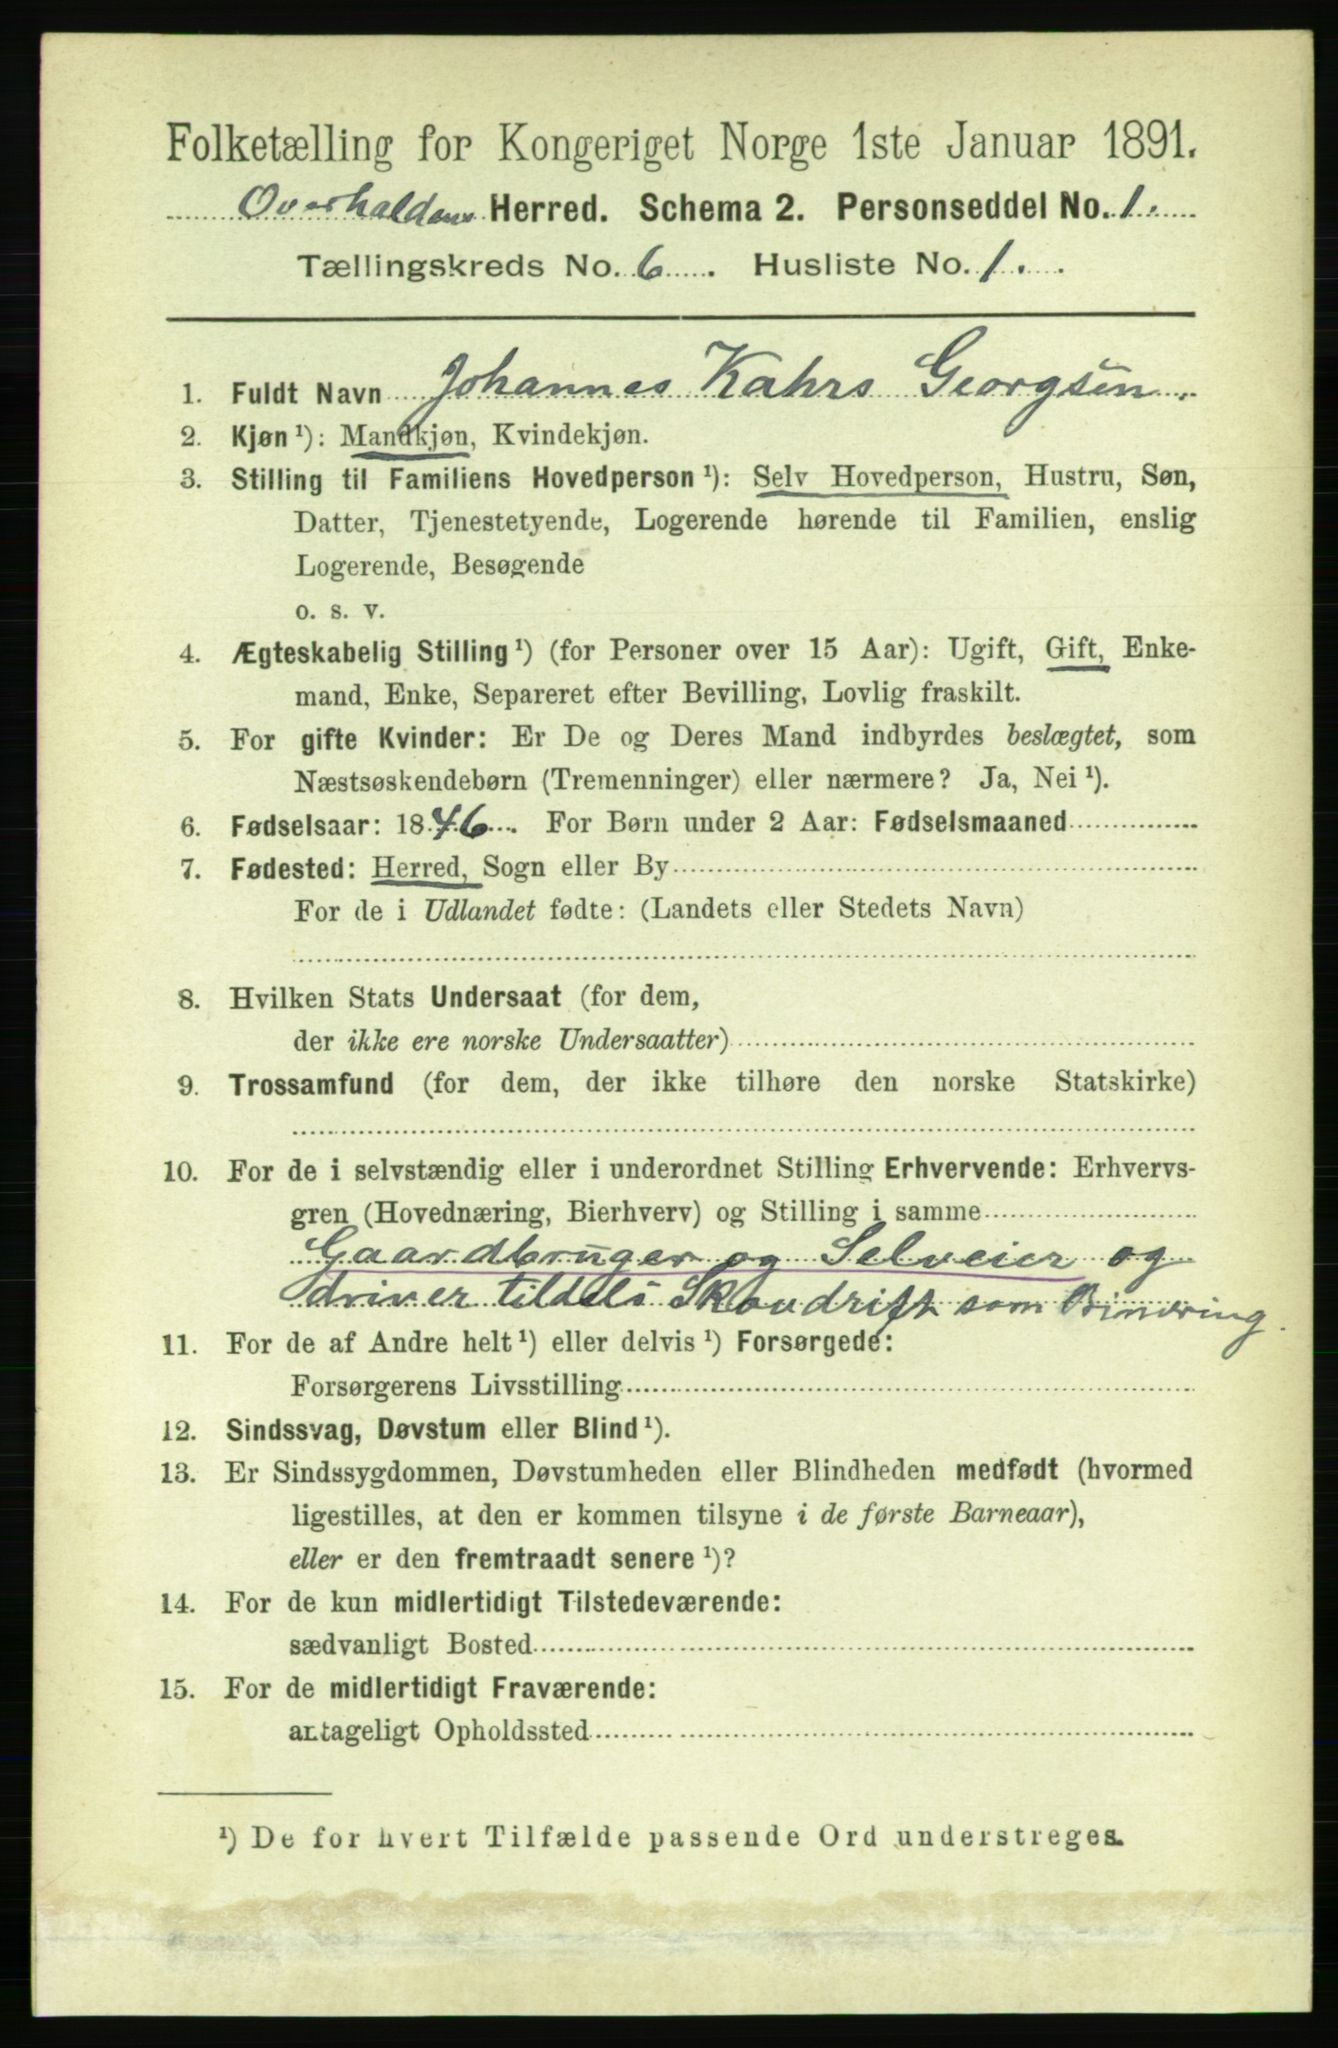 Folketælling for Kongeriget Norge 1ste Januar 1891.
Overhaldens Herred. Schema 2. Personseddel No. 1.
Tællingskreds No. 6. Husliste No. 1.
1. Fuldt Navn Johannes Kahrs Georgsen.
2. Kjøn ¹): Mandkjøn, Kvindekjøn.
3. Stilling til Familiens Hovedperson ¹): Selv Hovedperson, Hustru, Søn,
Datter, Tjenestetyende, Logerende hørende til Familien, enslig
Logerende, Besøgende
o. s. v.
4. Ægteskabelig Stilling ¹) (for Personer over 15 Aar): Ugift, Gift, Enke-
mand, Enke, Separeret efter Bevilling, Lovlig fraskilt.
5. For gifte Kvinder: Er De og Deres Mand indbyrdes beslægtet, som
Næstsøskendebørn (Tremenninger) eller nærmere? Ja, Nei ¹).
6. Fødselsaar: 1846. For Børn under 2 Aar: Fødselsmaaned
7. Fødested: Herred, Sogn eller By
For de i Udlandet fødte: (Landets eller Stedets Navn)
8. Hvilken Stats Undersaat (for dem,
der ikke ere norske Undersaatter)
9. Trossamfund (for dem, der ikke tilhøre den norske Statskirke)
10. For de i selvstændig eller i underordnet Stilling Erhvervende: Erhvervs-
gren (Hovednæring, Bierhverv) og Stilling i samme
Gaardbruger og Selveier og
driver tildels Skovdrift som Binæring.
11. For de af Andre helt ¹) eller delvis ¹) Forsørgede:
Forsørgerens Livsstilling
12. Sindssvag, Døvstum eller Blind ¹).
13. Er Sindssygdommen, Døvstumheden eller Blindheden medfødt (hvormed
ligestilles, at den er kommen tilsyne i de første Barneaar),
eller er den fremtraadt senere ¹)?
14. For de kun midlertidigt Tilstedeværende:
sædvanligt Bosted
15. For de midlertidigt Fraværende:
antageligt Opholdssted
¹) De for hvert Tilfælde passende Ord understreges.